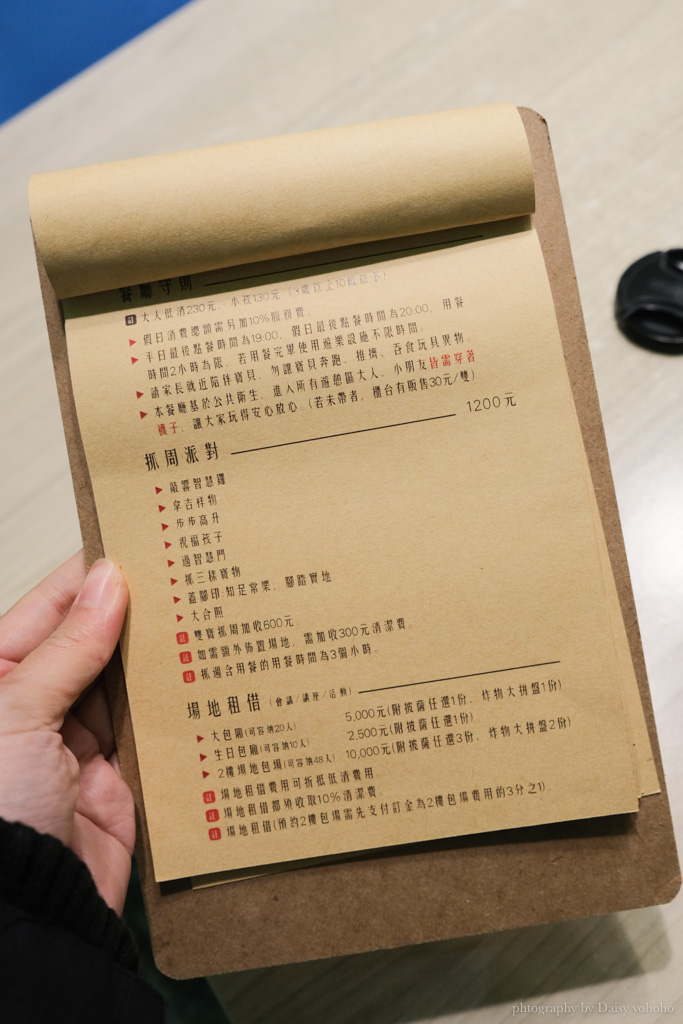 餐廳守則
註 大人低消230元、小孩130元（3歲以上10歲以下）
假日消費總額需另加10%服務費。
平日最後點餐時間為19:00，假日最後點餐時間為20:00，用餐
時間2小時為限，若用餐完畢使用遊樂設施不限時間。
請家長就近陪伴寶貝，勿讓寶貝奔跑、推擠、吞食玩具異物。
本餐廳基於公共衛生，進入所有遊憩區大人、小朋友皆需穿著
襪子，讓大家玩得安心放心。(若未帶者，櫃台有販售30元/雙)
抓周派對 1200元
敲響智慧鑼
拿吉祥物
步步高升
祝福孩子
過智慧門
抓三樣寶物
蓋腳印:知足常樂，腳踏實地
大合照
註 雙寶抓周加收600元
註 如需額外佈置場地，需加收300元清潔費。
註 抓週含用餐的用餐時間為3個小時。
場地租借（會議/講座/活動）
大包廂(可容納20人) 5,000元(附披薩任選1份、炸物大拼盤1份)
生日包廂(可容納10人) 2,500元(附披薩任選1份)
2樓場地包場(可容納48人) 10,000元(附披薩任選3份、炸物大拼盤2份)
註 場地租借費用可折抵低消費用
註 場地租借都須收取10%清潔費
註 場地租借(預約2樓包場需先支付訂金為2樓包場費用的3分之1)
phtography by Daisy yohoho